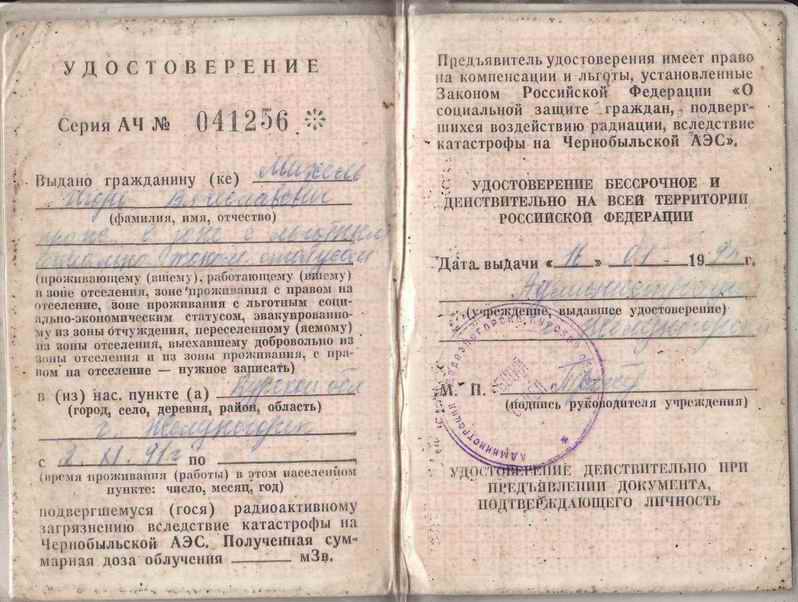 УДОСТОВЕРЕНИЕ
Серия АЧ № 041256 *
Выдано гражданину (ке)
Вячеславович
(фамилия, имя, отчество)
(проживающему (вшему), работающему (вшему)
в зоне отселения, зоне проживания с правом на
отселение, зоне проживания с льготным соци-
ально-экономическим статусом, эвакуированно-
му из зоны отчуждения, переселенному (яемому)
из зоны отселения, выехавшему добровольно из
зоны отселения и из зоны проживания, с пра-
вом на отселение — нужное записать)
в (из) нас. пункте (а) Курской обл
(город, село, деревня, район, область)
г. Железногорск
с 2. XI. 91г по
(время проживания (работы) в этом населенном
пункте: число, месяц, год)
подвергшемуся (гося) радиоактивному
загрязнению вследствие катастрофы на
Чернобыльской АЭС. Полученная сум-
марная доза облучения мЗв.
Предъявитель удостоверения имеет право
на компенсации и льготы, установленные
Законом Российской Федерации «О
социальной защите граждан, подверг-
шихся воздействию радиации, вследствие
катастрофы на Чернобыльской АЭС».
УДОСТОВЕРЕНИЕ БЕССРОЧНОЕ И
ДЕЙСТВИТЕЛЬНО НА ВСЕЙ ТЕРРИТОРИИ
РОССИЙСКОЙ ФЕДЕРАЦИИ
Дата выдачи « » 01 199 г.
Администрация
(учреждение, выдавшее удостоверение)
М. П.
(подпись руководителя учреждения)
УДОСТОВЕРЕНИЕ ДЕЙСТВИТЕЛЬНО ПРИ
ПРЕДЪЯВЛЕНИИ ДОКУМЕНТА,
ПОДТВЕРЖДАЮЩЕГО ЛИЧНОСТЬ